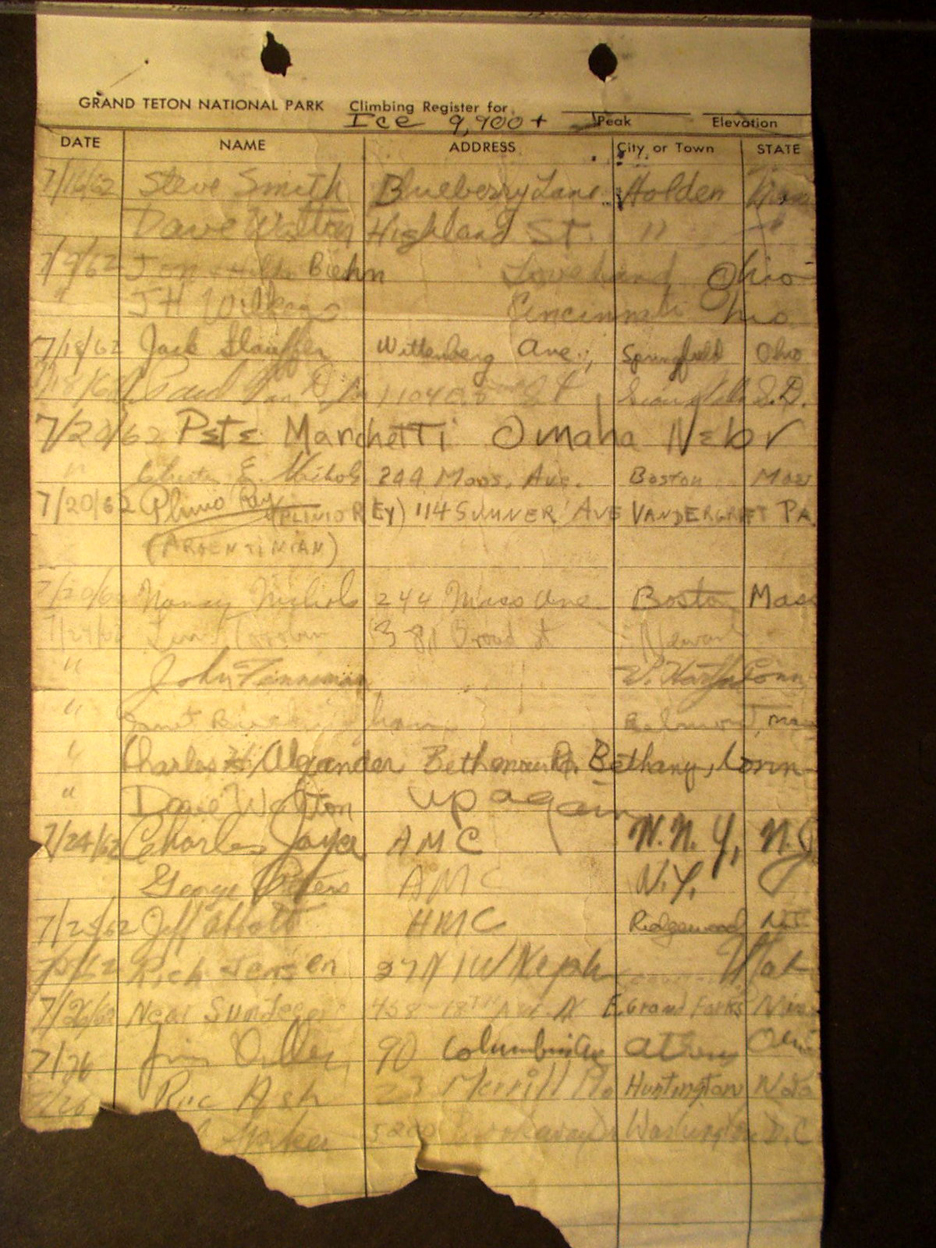 GRAND TETON NATIONAL PARK Climbing Register for
Ice 9,900+ Peak Elevation
DATE NAME ADDRESS City or Town STATE
7/16/62 Steve Smith Blueberry Lane Holden Mass
Dave Walton Highland St. " "
7/9/62 Biehn Loveland Ohio
" J H Cincinnati Ohio
7/18/62 Jack Stauffer Wittenberg Ave., Springfield Ohio
7/18/62 Paul S.D.
7/20/62 PETE Marchetti Omaha Nebr
" E. Nichols 244 Mass. Ave. Boston Mass
7/20/62 Plinio Rey (PLINIO REY) 114 SUMNER AVE VANDERGRIFT PA.
(ARGENTINIAN)
7/20/62 Nancy Nichols 244 Mass Ave. Boston Mass
7/24/62 381 Broad St Newark
" John W. Hartf Conn
" Janet Belmont, Mass
" Charles Alexander Bethmour Rd. Bethany, Conn
" Dave Walton up again
7/24/62 Charles Joyce AMC W.N.Y, N.J
George Peters AMC N.Y.
7/25/62 Jeff Abbott HMC Ridgewood N.J.
Rich Jensen 27 N 1 W Neph Utah
7/26/62 Neal 458-18TH Ave N E Grand Forks Minn
7/26 Jim 90 Columbia Av Athens Ohio
7/26 Ric Ash 23 Merrill Huntington
5200 Washington D.C